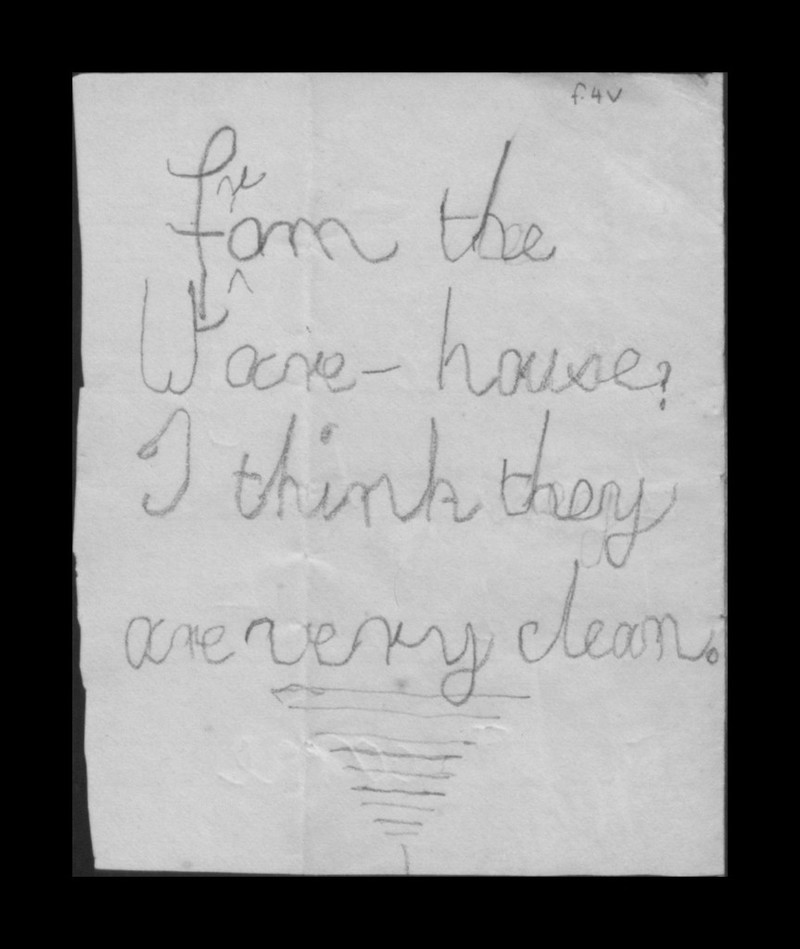 f.4v
from the
Ware- house?
I think they
are very clean.